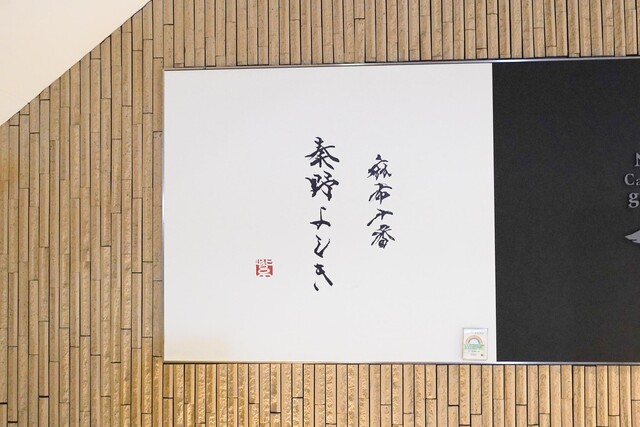 麻布十番
秦野よしき
N
Ca
g